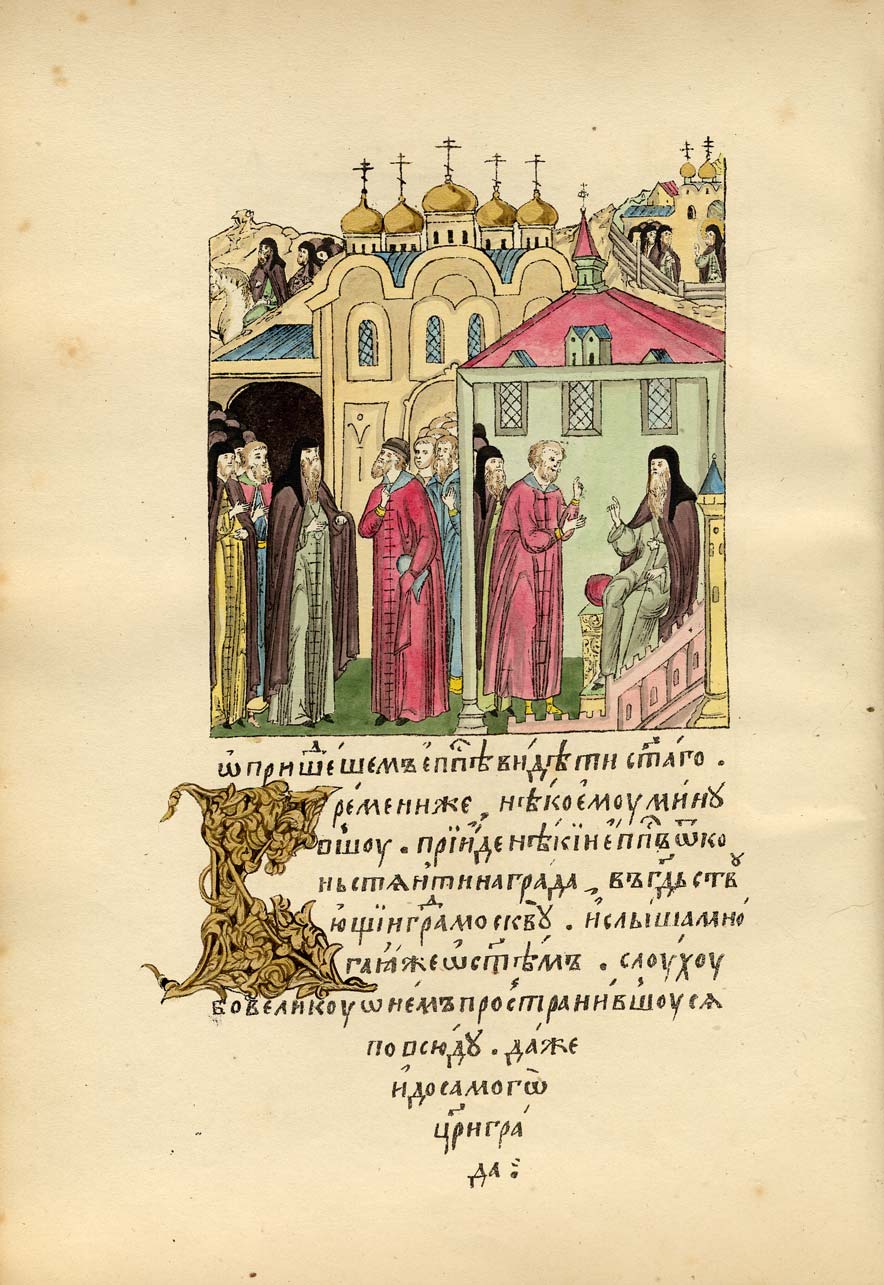 ѿ прише́дшемъ еп҃пѣ ви́дѣти ст҃а́го .
Времени́же , нѣ́коемоу минꙋ
вшоу . прїи́де нѣ́кїи еп҃пъ ѿ ко
ньстѧнтинагра́да , въ гдⷭ҇ьствꙋ
ю́щїи гра́д москв꙽ꙋ . и҆ слы́ша мно
гаꙗ҆́же ѡ҆ ст҃ѣмъ . слоу́хоу
бо великоу ѡ҆ нѐмъ простра́нившоусѧ
повсю́дꙋ . да́же
и҆ до самогѡ̀
цр҃игра́
да :